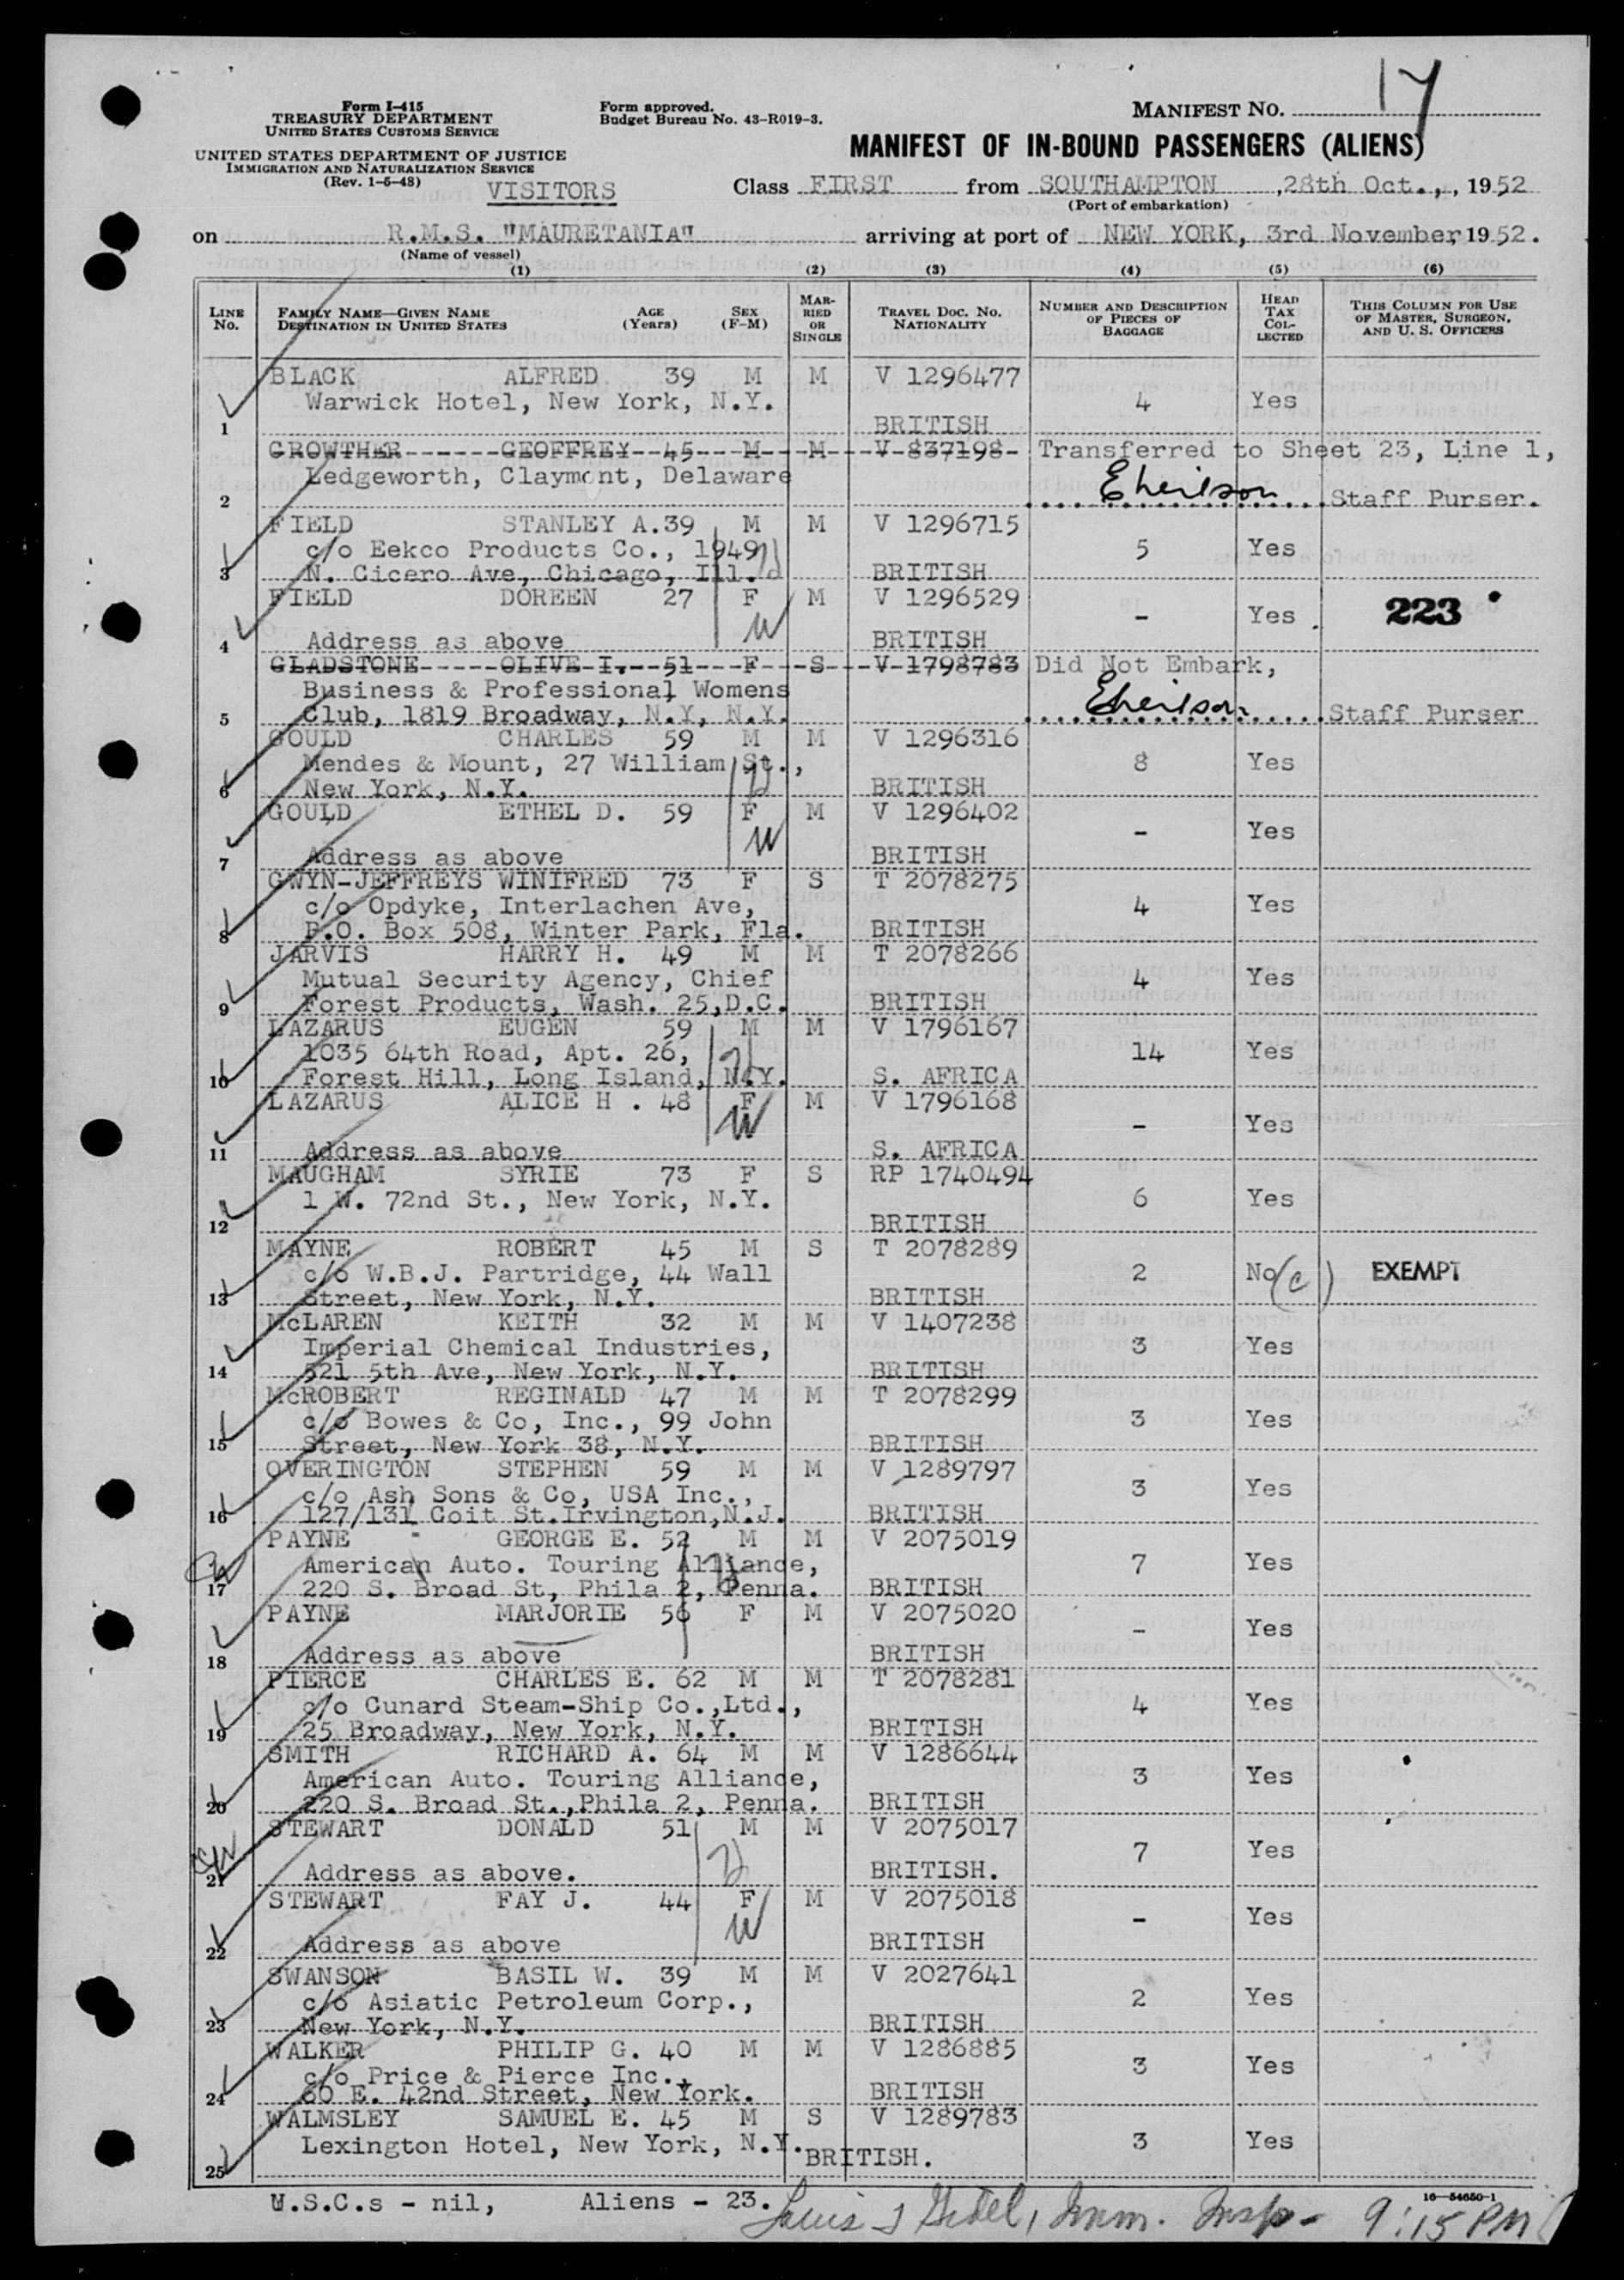 17
Form I-415
TREASURY DEPARTMENT
UNITED STATES CUSTOMS SERVICE
UNITED STATES DEPARTMENT OF JUSTICE
IMMIGRATION AND NATURALIZATION SERVICE
(Rev. 1-5-48)
VISITORS
Form approved.
Budget Bureau No. 43-R019-3.
MANIFEST NO.
MANIFEST OF IN-BOUND PASSENGERS (ALIENS)
Class FIRST from SOUTHAMPTON, 28th Oct., , 1952
(Port of embarkation)
on R.M.S. "MAURETANIA" arriving at port of NEW YORK, 3rd November, 1952.
(Name of vessel)
(1) (2) (3) (4) (5) (6)
LINE No. FAMILY NAME—GIVEN NAME DESTINATION IN UNITED STATES AGE (Years) SEX (F-M) MARRIED OR SINGLE TRAVEL DOC. NO. NATIONALITY NUMBER AND DESCRIPTION OF PIECES OF BAGGAGE HEAD TAX COLLECTED THIS COLUMN FOR USE OF MASTER, SURGEON, AND U. S. OFFICERS
BLACK ALFRED 39 M M V 1296477
Warwick Hotel, New York, N.Y. 4 Yes
1 BRITISH
CROWTHER GEOFFREY 45 M M V 837198 Transferred to Sheet 23, Line 1,
Ledgeworth, Claymont, Delaware
2 Staff Purser.
FIELD STANLEY A. 39 M M V 1296715
c/o Eekco Products Co., 1949 5 Yes
3 N. Cicero Ave, Chicago, Ill. BRITISH
FIELD DOREEN 27 F M V 1296529
- Yes 223
W
4 Address as above BRITISH
GLADSTONE OLIVE I. 51 F S V 1798783 Did Not Embark,
Business & Professional Womens
5 Club, 1819 Broadway, N.Y, N.Y. Staff Purser
GOULD CHARLES 59 M M V 1296316
Mendes & Mount, 27 William St., 8 Yes
6 New York, N.Y. BRITISH
GOULD ETHEL D. 59 F M V 1296402
W - Yes
7 Address as above BRITISH
GWYN-JEFFREYS WINIFRED 73 F S T 2078275
c/o Opdyke, Interlachen Ave, 4 Yes
8 P.O. Box 508, Winter Park, Fla. BRITISH
JARVIS HARRY H. 49 M M T 2078266
Mutual Security Agency, Chief 4 Yes
9 Forest Products, Wash. 25,D.C. BRITISH
LAZARUS EUGEN 59 M M V 1796167
1035 64th Road, Apt. 26, 14 Yes
10 Forest Hill, Long Island, N.Y. S. AFRICA
LAZARUS ALICE H . 48 F M V 1796168
W - Yes
11 Address as above S. AFRICA
MAUGHAM SYRIE 73 F S RP 1740494
1 W. 72nd St., New York, N.Y. 6 Yes
12 BRITISH
MAYNE ROBERT 45 M S T 2078289
c/o W.B.J. Partridge, 44 Wall 2 No (c) EXEMPT
13 Street, New York, N.Y. BRITISH
McLAREN KEITH 32 M M V 1407238
Imperial Chemical Industries, 3 Yes
14 521 5th Ave, New York, N.Y. BRITISH
McROBERT REGINALD 47 M M T 2078299
c/o Bowes & Co, Inc., 99 John 3 Yes
15 Street, New York 38, N.Y. BRITISH
OVERINGTON STEPHEN 59 M M V 1289797
c/o Ash Sons & Co, USA Inc., 3 Yes
16 127/131 Coit St.Irvington,N.J. BRITISH
PAYNE GEORGE E. 52 M M V 2075019
American Auto. Touring Alliance, 7 Yes
17 220 S. Broad St, Phila 2, Penna. BRITISH
PAYNE MARJORIE 56 F M V 2075020
- Yes
18 Address as above BRITISH
PIERCE CHARLES E. 62 M M T 2078281
c/o Cunard Steam-Ship Co.,Ltd., 4 Yes
19 25 Broadway, New York, N.Y. BRITISH
SMITH RICHARD A. 64 M M V 1286644
American Auto. Touring Alliance, 3 Yes
20 220 S. Broad St.,Phila 2, Penna. BRITISH
STEWART DONALD 51 M M V 2075017
7 Yes
21 Address as above. BRITISH.
STEWART FAY J. 44 F M V 2075018
W - Yes
22 Address as above BRITISH
SWANSON BASIL W. 39 M M V 2027641
c/o Asiatic Petroleum Corp., 2 Yes
23 New York, N.Y. BRITISH
WALKER PHILIP G. 40 M M V 1286885
c/o Price & Pierce Inc., 3 Yes
24 60 E. 42nd Street, New York. BRITISH
WALMSLEY SAMUEL E. 45 M S V 1289783
Lexington Hotel, New York, N.Y. BRITISH. 3 Yes
25
16—54650-1
U.S.C.s - nil, Aliens - 23. Louis Imm. Insp- 9:15 PM